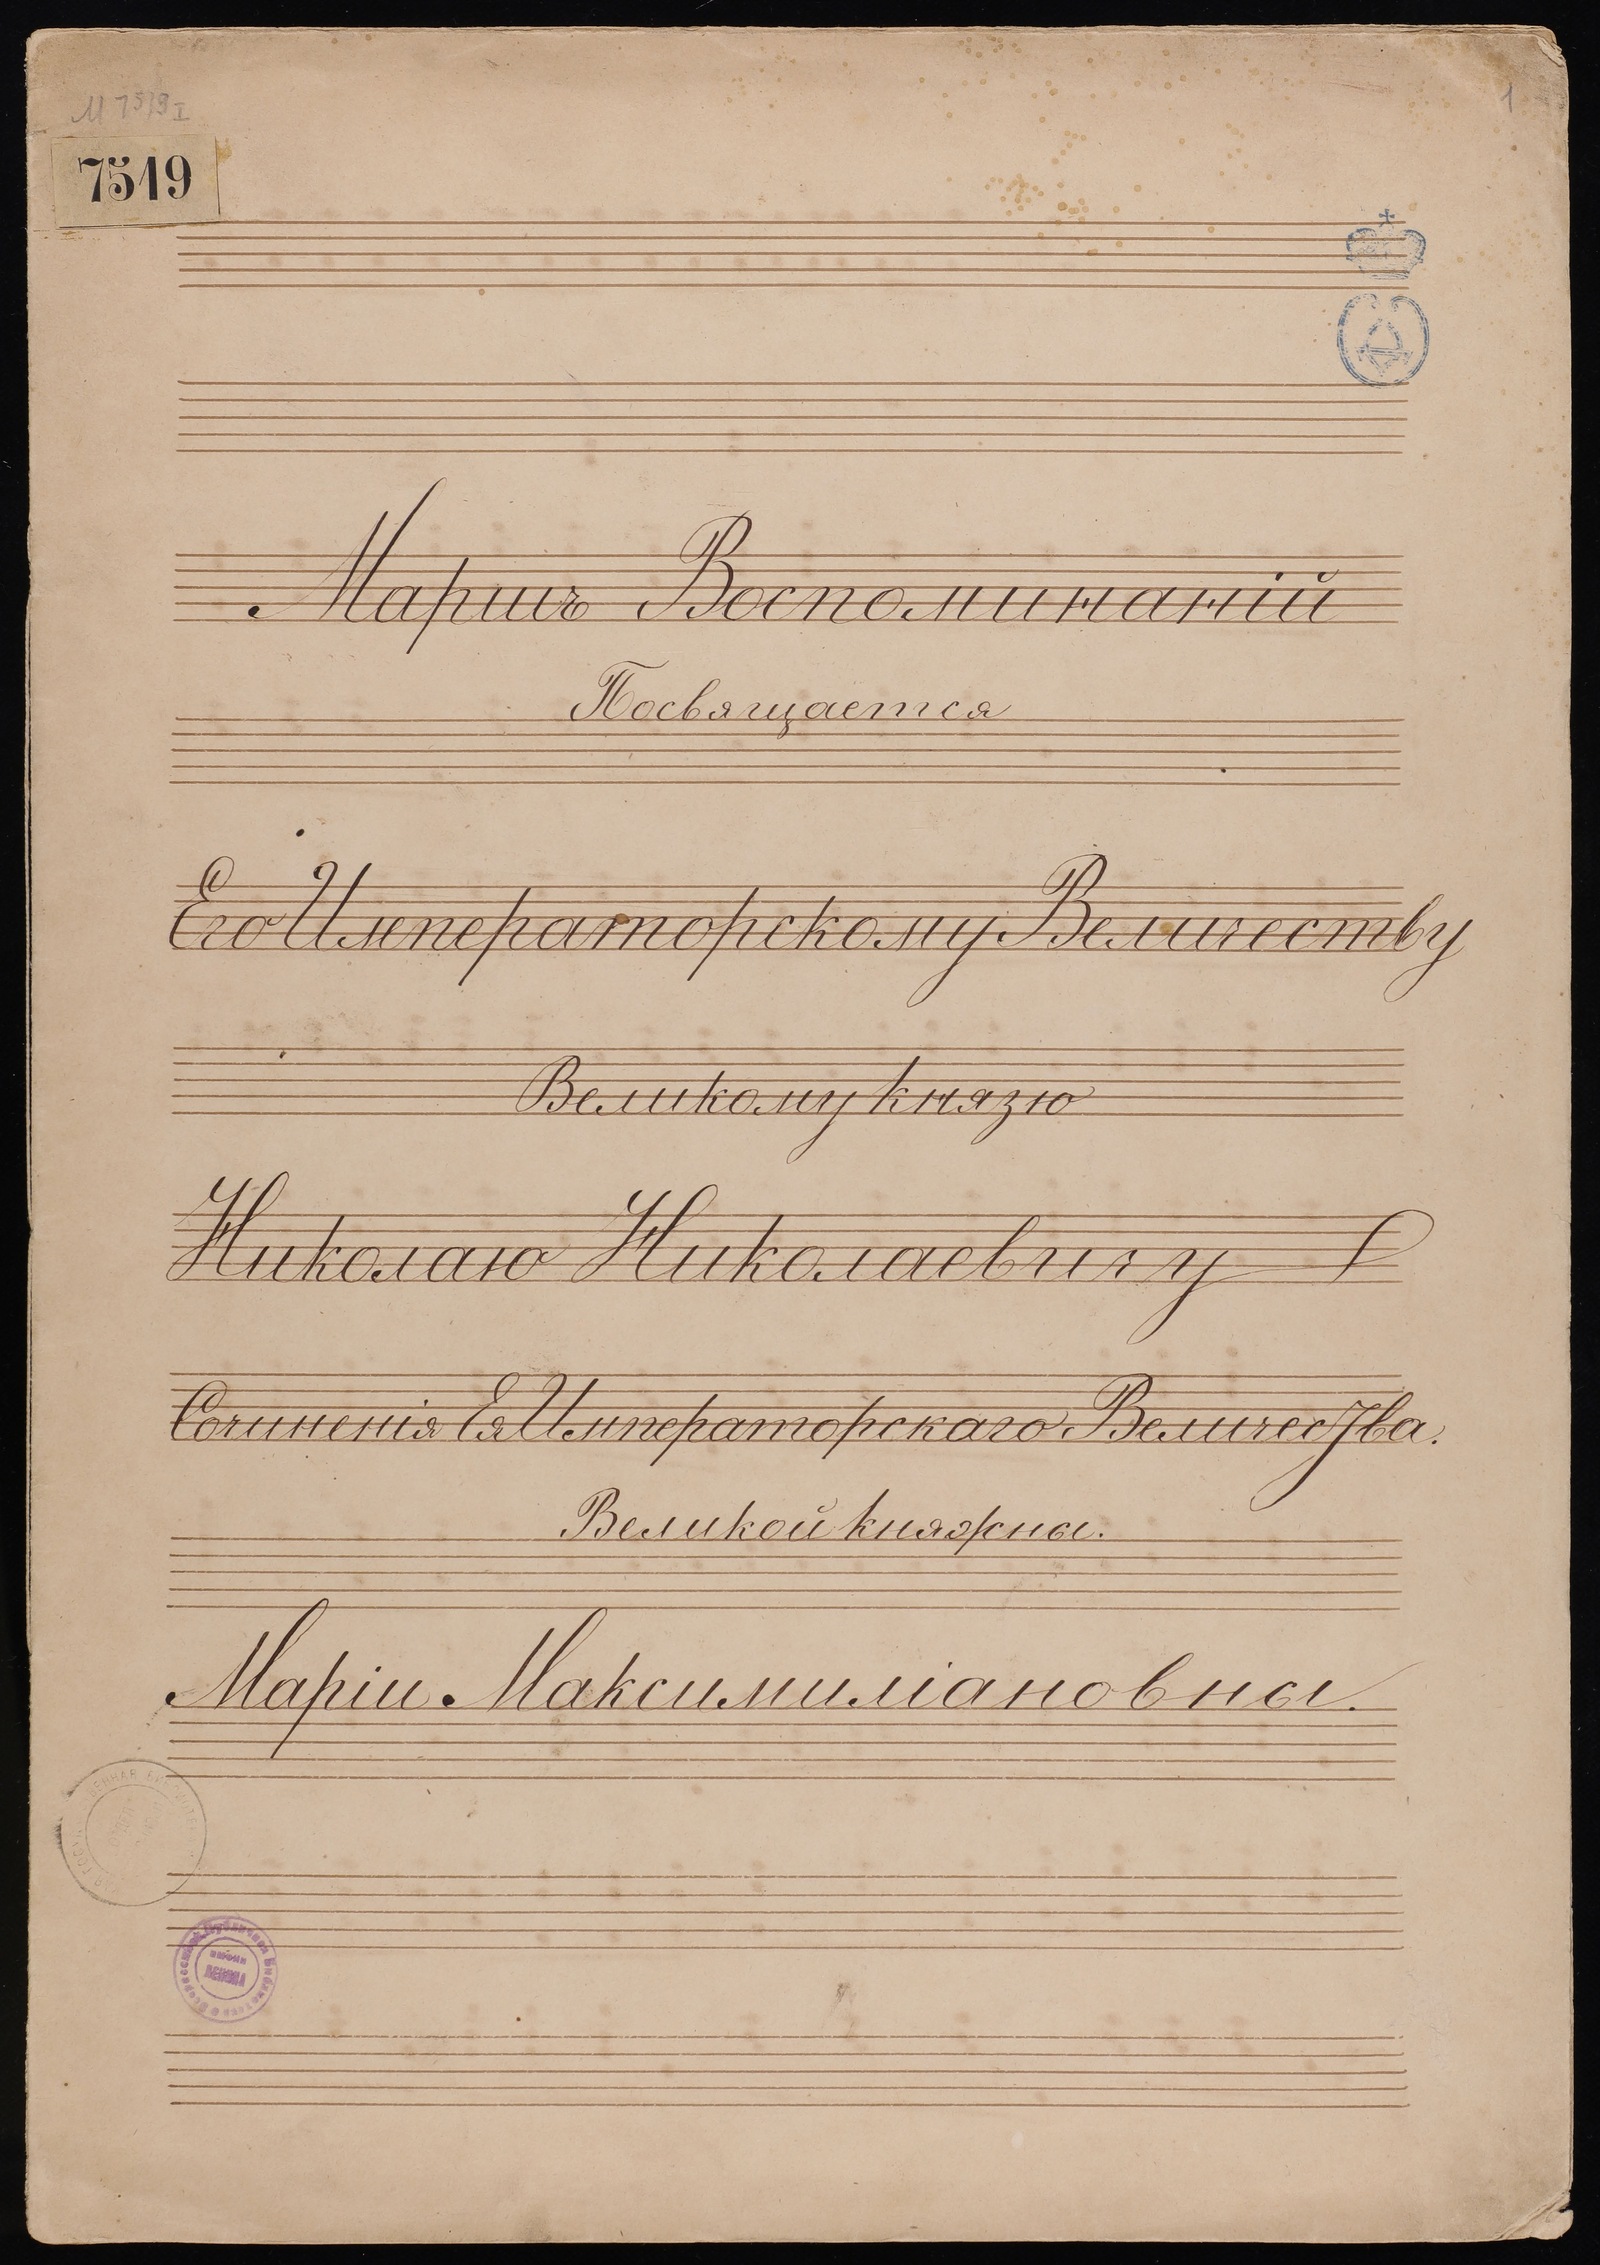 М 7519 I
1
7519
Маршъ Воспоминанiй
Посвящается
Его Императорскому Величеству
Великому князю
Николаю Николаевичу
Сочиненiя Ея Императорскаго Величества.
Великой княжны.
Марiи Максимилiановны.
Публичная Библиотека
имени
ЛЕНИНА